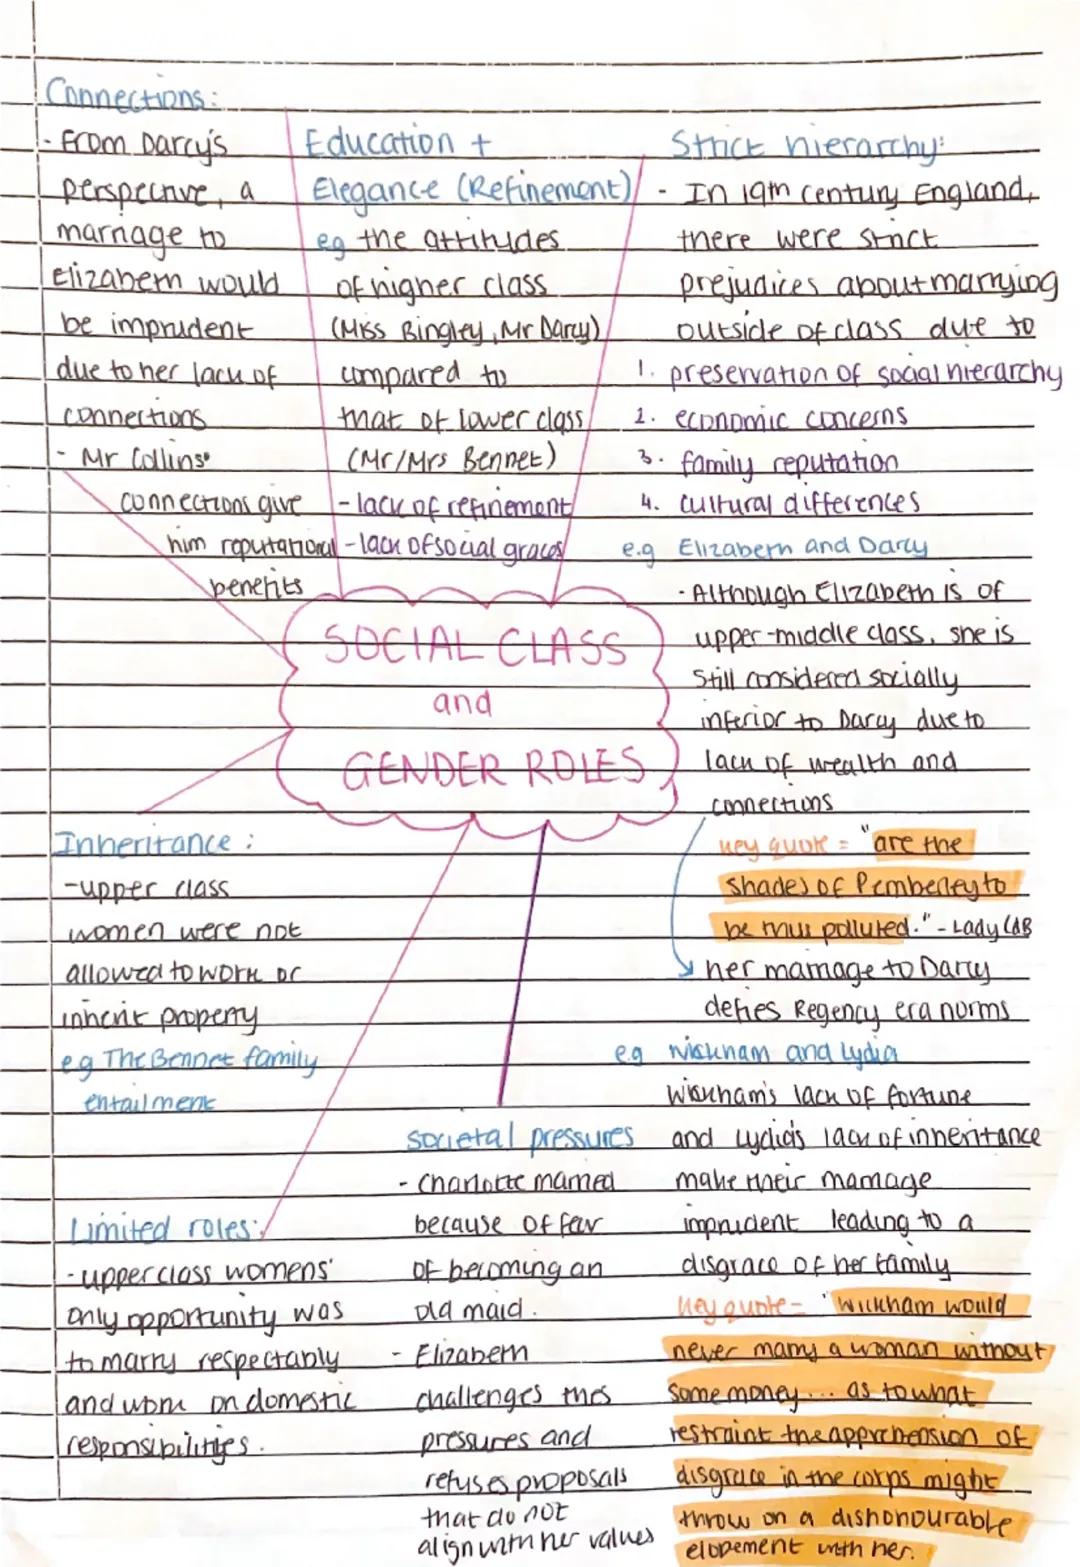 Connections:
- From Darcy's
perspective, a
marriage to
Elizabeth would
be imprudent
due to her lack of
connections
- Mr Collins'
connections give
him reputational
benefits
Education +
Elegance (Refinement)
eg the attitudes
of higher class
(Miss Bingley, Mr Darcy)
compared to
that of lower class
(Mr/Mrs Bennet)
- lack of refinement
- lack of social graces
Strict hierarchy:
- In 19th century England,
there were strict
prejudices about marrying
outside of class due to
1. preservation of social hierarchy
2. economic concerns
3. family reputation
4. cultural differences
e.g Elizabeth and Darcy
- Although Elizabeth is of
upper-middle class, she is
still considered socially
inferior to Darcy due to
lack of wealth and
connections
key quote = "are the
shades of Pemberley to
be thus polluted." - Lady CdB
her marriage to Darcy
defies Regency era norms
e.g Wickham and Lydia
Wickham's lack of fortune
and Lydia's lack of inheritance
make their marriage
imprudent leading to a
disgrace of her family
key quote - "Wickham would
never marry a woman without
some money... as to what
restraint the apprehension of
disgrace in the corps might
throw on a dishonourable
elopement with her.
SOCIAL CLASS
and
GENDER ROLES
Inheritance:
- upper class
women were not
allowed to work or
inherit property
eg The Bennet family
entailment
Limited roles:
- upperclass womens'
only opportunity was
to marry respectably
and work on domestic
responsibilities.
societal pressures
- Charlotte married
because of fear
of becoming an
old maid.
- Elizabeth
challenges thes
pressures and
refuses proposals
that do not
align with her values